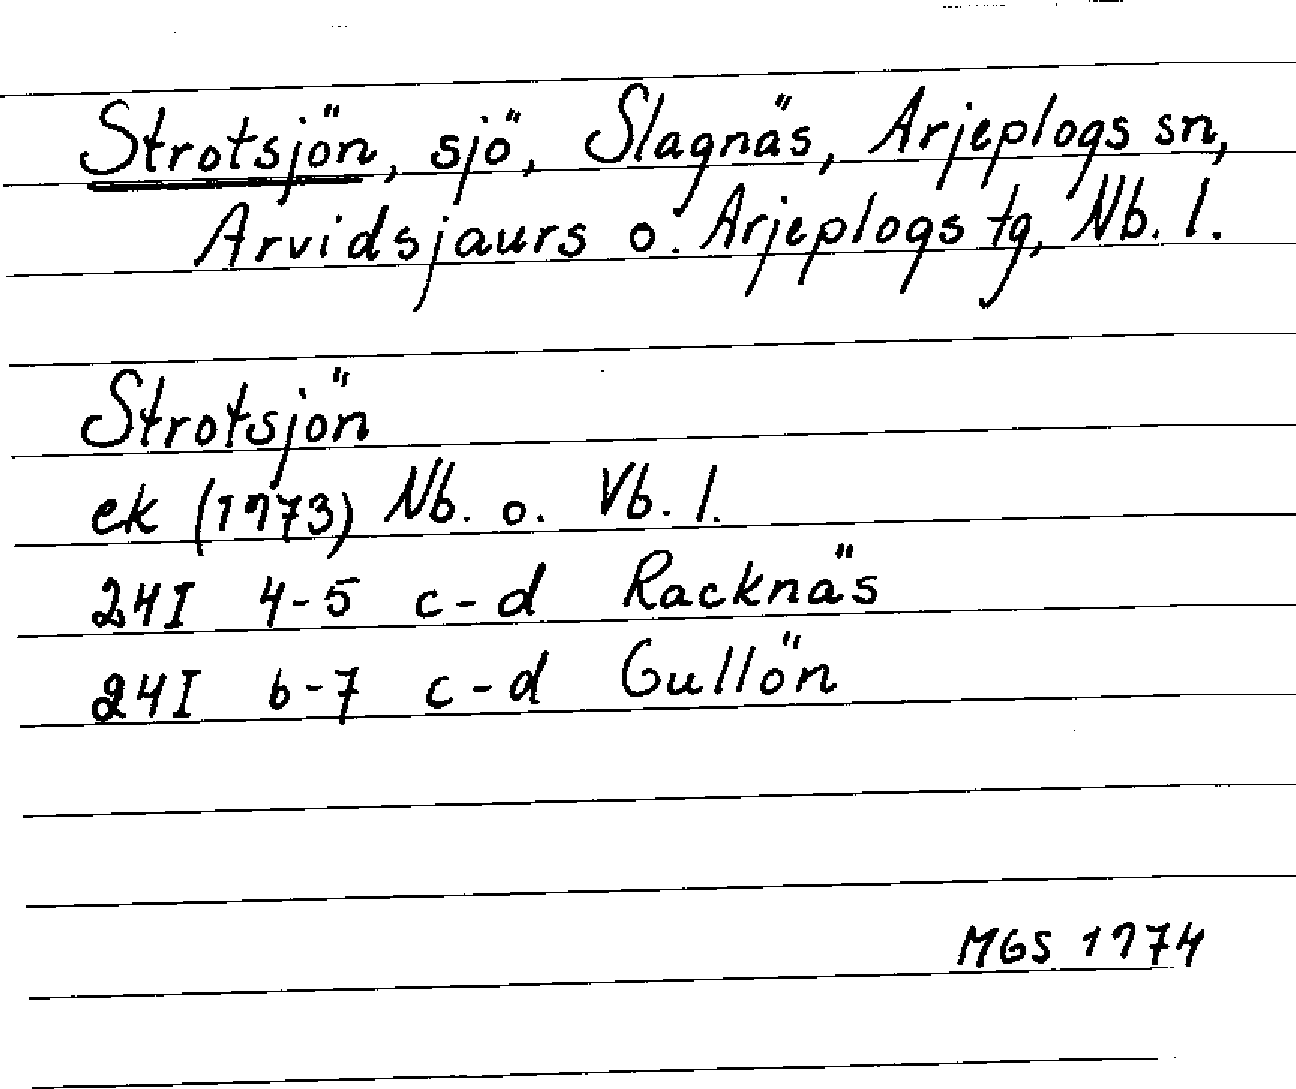 Strotsjön, sjö, Slagnäs, Arjeplogs sn,
Arvidsjaurs o. Arjeplogs tg, Nb. l.
Strotsjön
ek (1973) Nb. o. Vb. l.
24I 4-5 c-d Racknäs
24I 6-7 c-d Gullön
MGS 1974